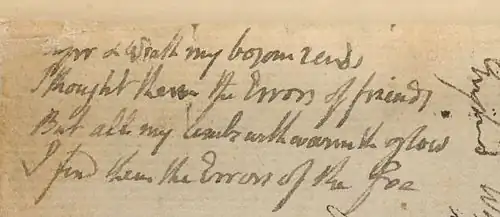 Anger & Wrath my bosom rends
I thought them the Errors of friends
But all my limbs with warmth glow
I find them the Errors of the foe